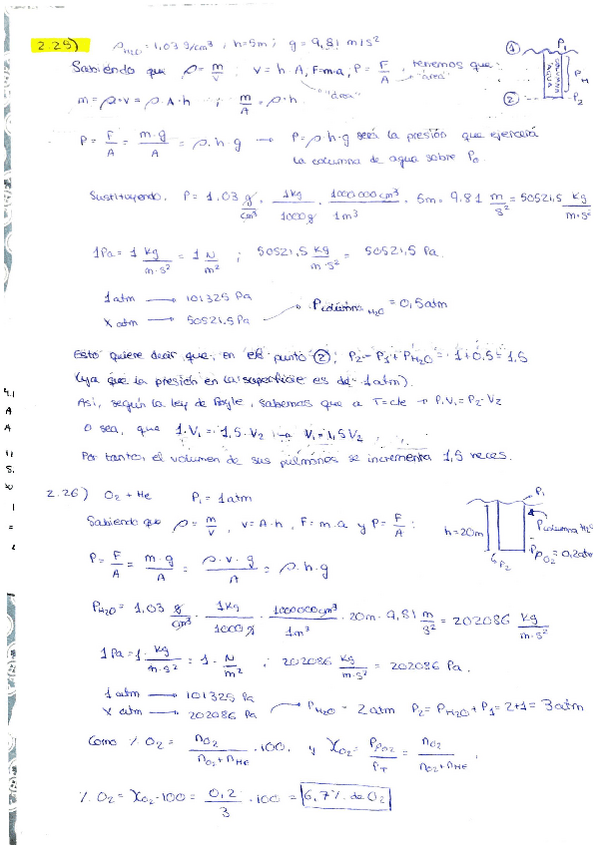 2.25) ρH2O = 1,03 g/cm³ ; h=5m ; g = 9,81 m/s²
Sabiendo que ρ = m/V ; V = h·A, F=m·a, P = F/A, tenemos que:
"área" "área"
m = ρ·V = ρ·A·h ; m/A = ρ·h.
P = F/A = m·g/A = ρ·h·g → P = ρ·h·g será la presión que ejercerá
la columna de agua sobre P0
Sustituyendo. P = 1,03 g/cm³ · 1kg/1000g · 1000000cm³/1m³ · 5m · 9,81 m/s² = 50521,5 kg/m·s²
1Pa = 1 kg/m·s² = 1 N/m² ; 50521,5 kg/m·s² = 50521,5 Pa.
1 atm → 101325 Pa
X atm → 50521,5 Pa → Pcolumna H2O = 0,5 atm
Esto quiere decir que, en el punto ②; P2 = P1 + PH2O = 1+0,5 = 1,5
(ya que la presión en la superficie es de 1 atm).
Así, según la ley de Boyle, sabemos que a T=cte → P1·V1 = P2·V2
o sea, que 1·V1 = 1,5·V2 → V1 = 1,5V2
Por tanto, el volumen de sus pulmones se incrementa 1,5 veces.
① P1
COLUMNA AGUA
PH
② P2
2.26) O2 + He P1 = 1 atm
Sabiendo que ρ = m/V, V = A·h, F = m·a y P = F/A:
P = F/A = m·g/A = ρ·V·g/A = ρ·h·g
P1
h=20m
Pcolumna H2O
PpO2 = 0,2 atm
P2
PH2O = 1,03 g/cm³ · 1Kg/1000g · 1000000cm³/1m³ · 20m · 9,81 m/s² = 202086 kg/m·s²
1Pa = 1 · kg/m·s² = 1 · N/m² ; 202086 kg/m·s² = 202086 Pa.
1 atm → 101325 Pa
X atm → 202086 Pa → PH2O = 2 atm P2 = PH2O + P1 = 2+1 = 3 atm
Como % O2 = nO2/nO2+nHe · 100. y XO2 = PpO2/PT = nO2/nO2+nHe .
% O2 = XO2·100 = 0,2/3 · 100 = 6,7% de O2